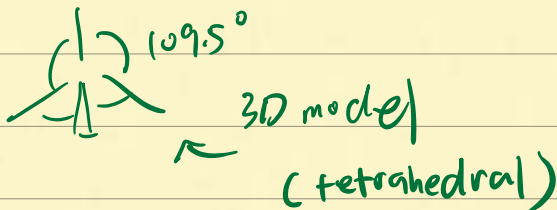 109.5°
3D model
(tetrahedral)